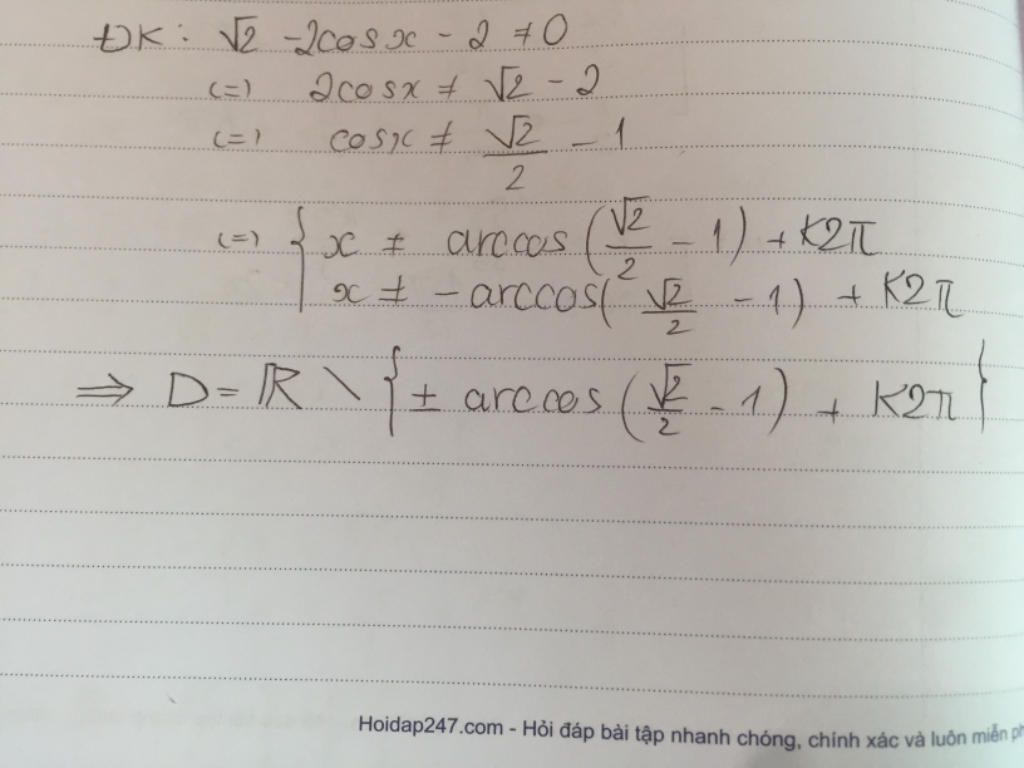 ĐK: √2 - 2cosx - 2 ≠ 0
(=) 2cosx ≠ √2 - 2
(=) cosx ≠ √2/2 - 1
(=) { x ≠ arccos(√2/2 - 1) + K2π
x ≠ -arccos(√2/2 - 1) + K2π
⇒ D = ℝ \ {± arccos(√2/2 - 1) + K2π}
Hoidap247.com - Hỏi đáp bài tập nhanh chóng, chính xác và luôn miễn ph